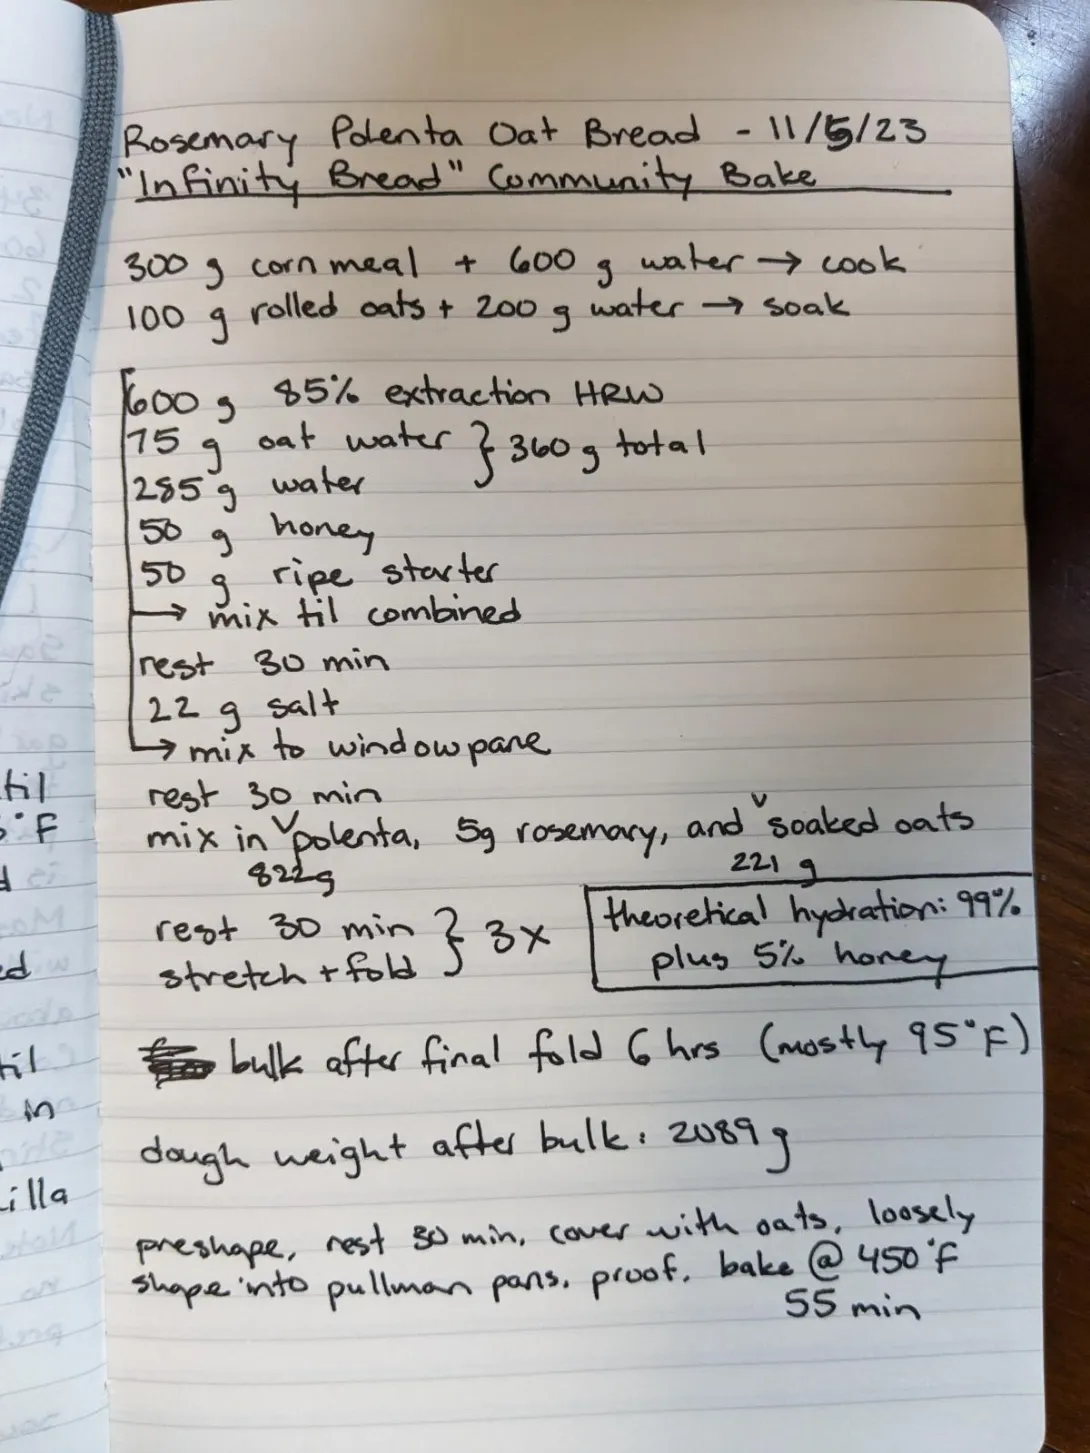 Rosemary Polenta Oat Bread - 11/5/23
"Infinity Bread" Community Bake
300 g corn meal + 600 g water → cook
100 g rolled oats + 200 g water → soak
600 g 85% extraction HRW
75 g oat water } 360 g total
285 g water
50 g honey
50 g ripe starter
→ mix til combined
rest 30 min
22 g salt
→ mix to windowpane
rest 30 min
mix in ∨ polenta, 5g rosemary, and ∨ soaked oats
822g 221 g
rest 30 min } 3x
stretch + fold
theoretical hydration: 99%
plus 5% honey
bulk after final fold 6 hrs (mostly 95°F)
dough weight after bulk: 2089 g
preshape, rest 30 min, cover with oats, loosely
shape into pullman pans, proof, bake @ 450°F
55 min
til
°F
d
ed
til
in
illa